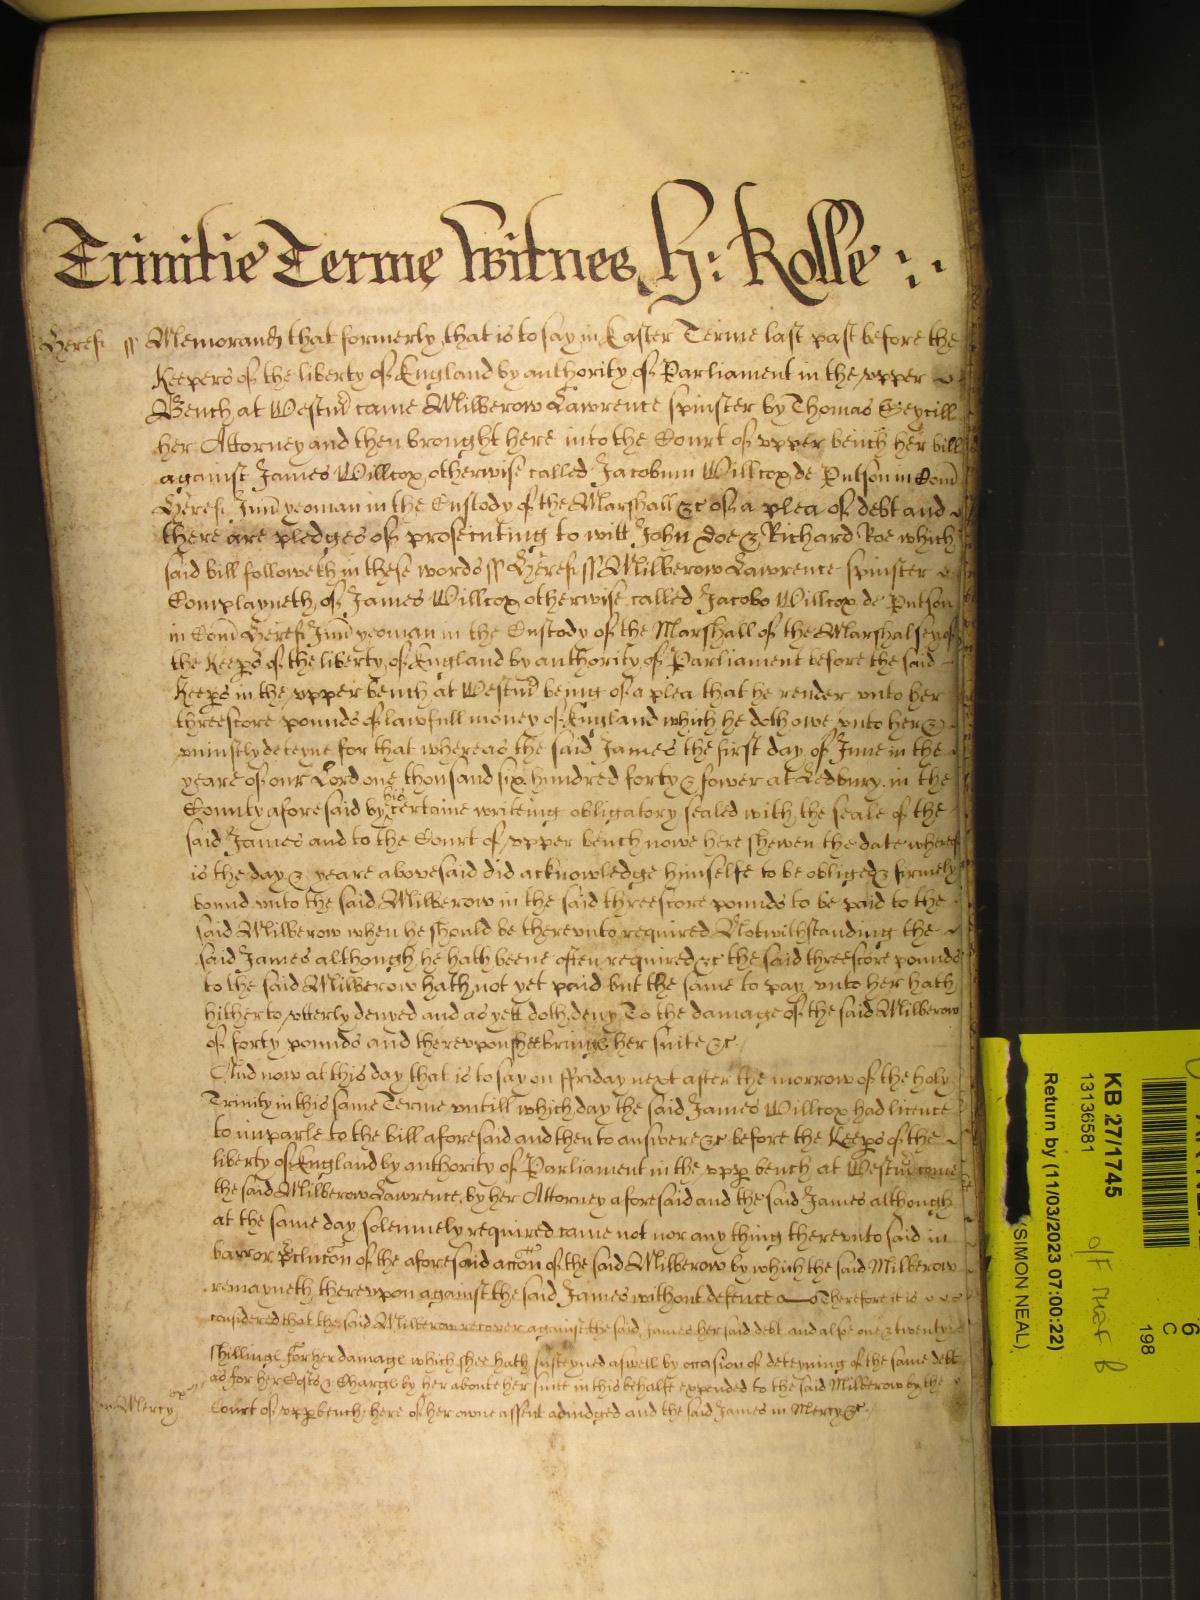 Trinitie Terme Witnes H: Rolle
Herefs ss Memorand that formerly that is to say in Easter Terme last past before the
Keepers of the liberty of England by authority of Parliament in the upper
Bench at Westm came Milberow Lawrence spinster by Thomas Seycill
her Attorney and then brought here into the Court of upper bench her bill
against James Willcox otherwise called Jacobum Willcox de Putson in Com
Herefs Juni yeoman in the Custody of the Marshall &c of a plea of debt and
there are pledges of prosecuting to witt John Doe & Richard Roe which
said bill followeth in these words ss Herefs ss Milberow Lawrence spinster
Complayneth of James Willcox otherwise called Jacobo Willcox de Putson
in Com Herefs Juni yeoman in the Custody of the Marshall of the Marshalsey of
the Keeps of the liberty of England by authority of Parliament before the said
Keeps in the upper bench at Westm being of a plea that he render unto her
threescore pounds of lawfull money of England which he doth owe unto her &
uniustly deteyne for that whereas the said James the first day of June in the
yeare of our Lord one thousand six hundred forty & fower at Ledbury in the
County aforesaid by his certaine writeing obligatory sealed with the seale of the
said James and to the Court of upper bench nowe here shewen the date whereof
is the day & yeare abovesaid did acknowledge himselfe to be obliged & firmely
bound unto the said Milberow in the said threescore pounds to be paid to the
said Milberow when he should be thereunto required Notwithstanding the
said James although he hath beene often required &c the said threescore pounds
to the said Milberow hath not yet paid but the same to pay unto her hath
hitherto utterly denyed and as yett doth deny To the damage of the said Milberow
of forty pounds and thereupon shee brings her suite &c
And now at this day that is to say on ffriday next after the morrow of the holy
Trinity in this same Terme untill which day the said James Willcox had licence
to imparle to the bill aforesaid and then to answere &c before the Keeps of the
liberty of England by authority of Parliament in the upp bench at Westm come
the said Milberow Lawrence by her Attorney aforesaid and the said James although
at the same day solemnely required came not nor any thing thereunto said in
barr or pclucon of the aforesaid accon of the said Milberow by which the said Milberow
remayneth thereupon against the said James without defence Therefore it is
considered that the said Milberow recover against the said James her said debt and alsoe one & twenty
shillings for her damage which shee hath susteyned aswell by occasion of deteyning of the same debt
as for her Costs & Charges by her aboute her suite in this behalfe expended to the said Milberow by the
in Mercy Court of upp bench here of her owne assent adiudged and the said James in Mercy &c
KB 27/1745
13136581
Return by (11/03/2023 07:00:22)
(SIMON NEAL)
C
198